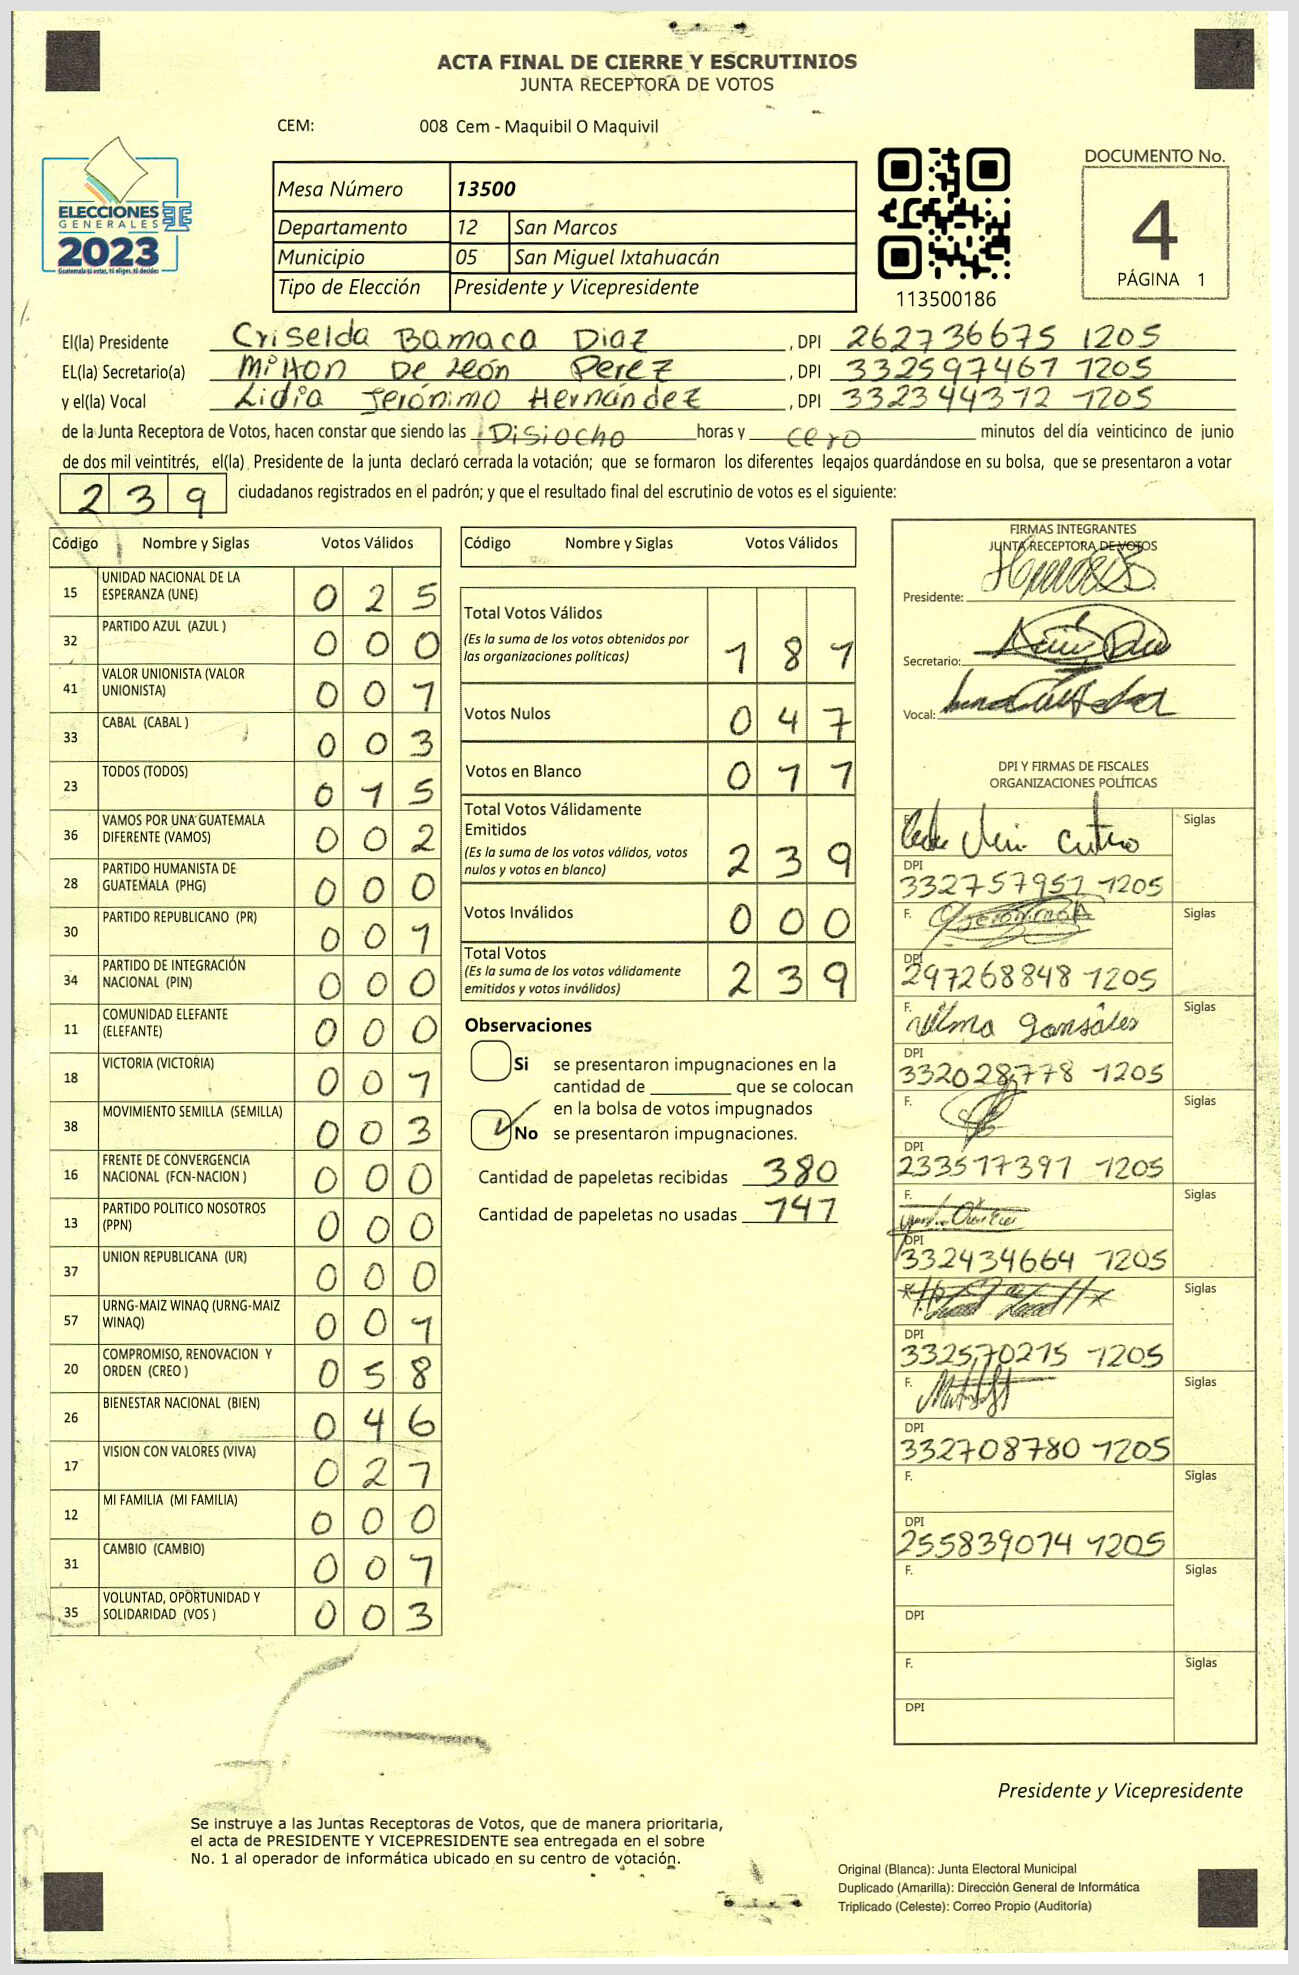 ACTA FINAL DE CIERRE Y ESCRUTINIOS
JUNTA RECEPTORA DE VOTOS
CEM: 008 Cem - Maquibil O Maquivil
ELECCIONES
GENERALES
2023
Guatemala tú votas, tú eliges, tú decides
Mesa Número 13500
Departamento 12 San Marcos
Municipio 05 San Miguel Ixtahuacán
Tipo de Elección Presidente y Vicepresidente
113500186
DOCUMENTO No.
4
PÁGINA 1
El(la) Presidente Criselda Bamaca Diaz, DPI 262736675 1205
EL(la) Secretario(a) Milton De León Perez, DPI 332597467 1205
y el(la) Vocal Lidia Jerónimo Hernández, DPI 332344372 1205
de la Junta Receptora de Votos, hacen constar que siendo las Disiocho horas y cero minutos del día veinticinco de junio
de dos mil veintitrés, el(la) Presidente de la junta declaró cerrada la votación; que se formaron los diferentes legajos guardándose en su bolsa, que se presentaron a votar
239 ciudadanos registrados en el padrón; y que el resultado final del escrutinio de votos es el siguiente:
Código Nombre y Siglas Votos Válidos
15 UNIDAD NACIONAL DE LA ESPERANZA (UNE) 0 2 5
32 PARTIDO AZUL (AZUL ) 0 0 0
41 VALOR UNIONISTA (VALOR UNIONISTA) 0 0 1
33 CABAL (CABAL ) 0 0 3
23 TODOS (TODOS) 0 1 5
36 VAMOS POR UNA GUATEMALA DIFERENTE (VAMOS) 0 0 2
28 PARTIDO HUMANISTA DE GUATEMALA (PHG) 0 0 0
30 PARTIDO REPUBLICANO (PR) 0 0 1
34 PARTIDO DE INTEGRACIÓN NACIONAL (PIN) 0 0 0
11 COMUNIDAD ELEFANTE (ELEFANTE) 0 0 0
18 VICTORIA (VICTORIA) 0 0 1
38 MOVIMIENTO SEMILLA (SEMILLA) 0 0 3
16 FRENTE DE CONVERGENCIA NACIONAL (FCN-NACION ) 0 0 0
13 PARTIDO POLITICO NOSOTROS (PPN) 0 0 0
37 UNION REPUBLICANA (UR) 0 0 0
57 URNG-MAIZ WINAQ (URNG-MAIZ WINAQ) 0 0 1
20 COMPROMISO, RENOVACION Y ORDEN (CREO ) 0 5 8
26 BIENESTAR NACIONAL (BIEN) 0 4 6
17 VISION CON VALORES (VIVA) 0 2 7
12 MI FAMILIA (MI FAMILIA) 0 0 0
31 CAMBIO (CAMBIO) 0 0 1
35 VOLUNTAD, OPORTUNIDAD Y SOLIDARIDAD (VOS ) 0 0 3
Código Nombre y Siglas Votos Válidos
Total Votos Válidos
(Es la suma de los votos obtenidos por
las organizaciones politicas) 1 8 1
Votos Nulos 0 4 7
Votos en Blanco 0 1 1
Total Votos Válidamente
Emitidos
(Es la suma de los votos válidos, votos
nulos y votos en blanco) 2 3 9
Votos Inválidos 0 0 0
Total Votos
(Es la suma de los votos válidamente
emitidos y votos inválidos) 2 3 9
Observaciones
Si se presentaron impugnaciones en la
cantidad de que se colocan
en la bolsa de votos impugnados
No se presentaron impugnaciones.
Cantidad de papeletas recibidas 380
Cantidad de papeletas no usadas 141
FIRMAS INTEGRANTES
JUNTA RECEPTORA DE VOTOS
Presidente:
Secretario:
Vocal:
DPI Y FIRMAS DE FISCALES
ORGANIZACIONES POLÍTICAS
F. Siglas
DPI
332757951 1205
F. Siglas
DPI
297268848 1205
F. Vilma gonsáles Siglas
DPI
332028778 1205
F. Siglas
DPI
233517391 1205
F. Siglas
DPI
332434664 1205
Siglas
DPI
332570215 1205
F. Siglas
DPI
332708780 1205
F. Siglas
DPI
255839074 1205
F. Siglas
DPI
F. Siglas
DPI
Presidente y Vicepresidente
Se instruye a las Juntas Receptoras de Votos, que de manera prioritaria,
el acta de PRESIDENTE Y VICEPRESIDENTE sea entregada en el sobre
No. 1 al operador de informática ubicado en su centro de votación.
Original (Blanca): Junta Electoral Municipal
Duplicado (Amarilla): Dirección General de Informática
Triplicado (Celeste): Correo Propio (Auditoría)